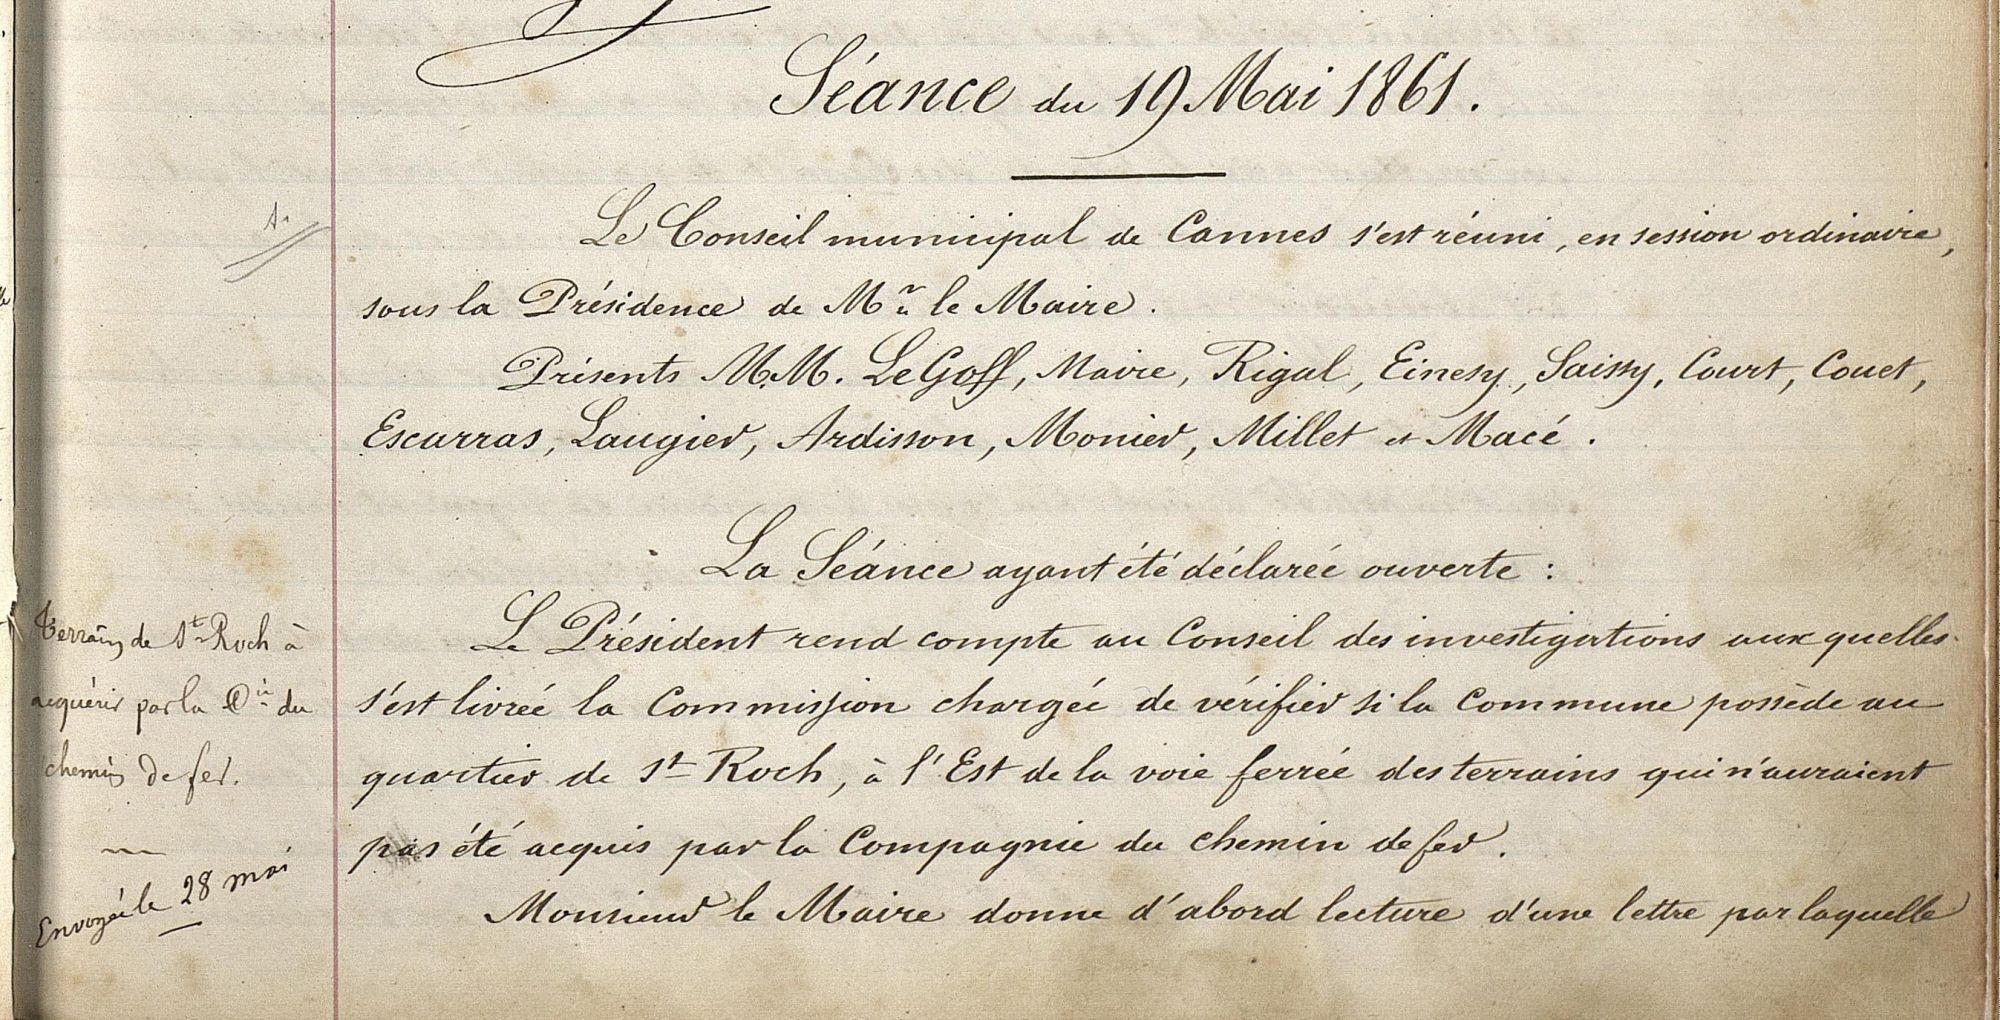 Séance du 19 Mai 1861.
Le Conseil municipal de Cannes s'est réuni, en session ordinaire,
sous la Présidence de Mr le Maire.
Présents M.M. Le Goff, Maire, Rigal, Einesy, Saissy, Court, Couet,
Escarras, Laugier, Ardisson, Monier, Millet et Macé.
La Séance ayant été déclarée ouverte :
Terrain de St Roch à
acquérir par la Cie du
chemin de fer.
Envoyée le 28 mai
Le Président rend compte au Conseil des investigations aux quelles
s'est livrée la Commission chargée de vérifier si la Commune possède au
quartier de St Roch, à l'Est de la voie ferrée des terrains qui n'auraient
pas été acquis par la Compagnie du chemin de fer.
Monsieur le Maire donne d'abord lecture d'une lettre par laquelle